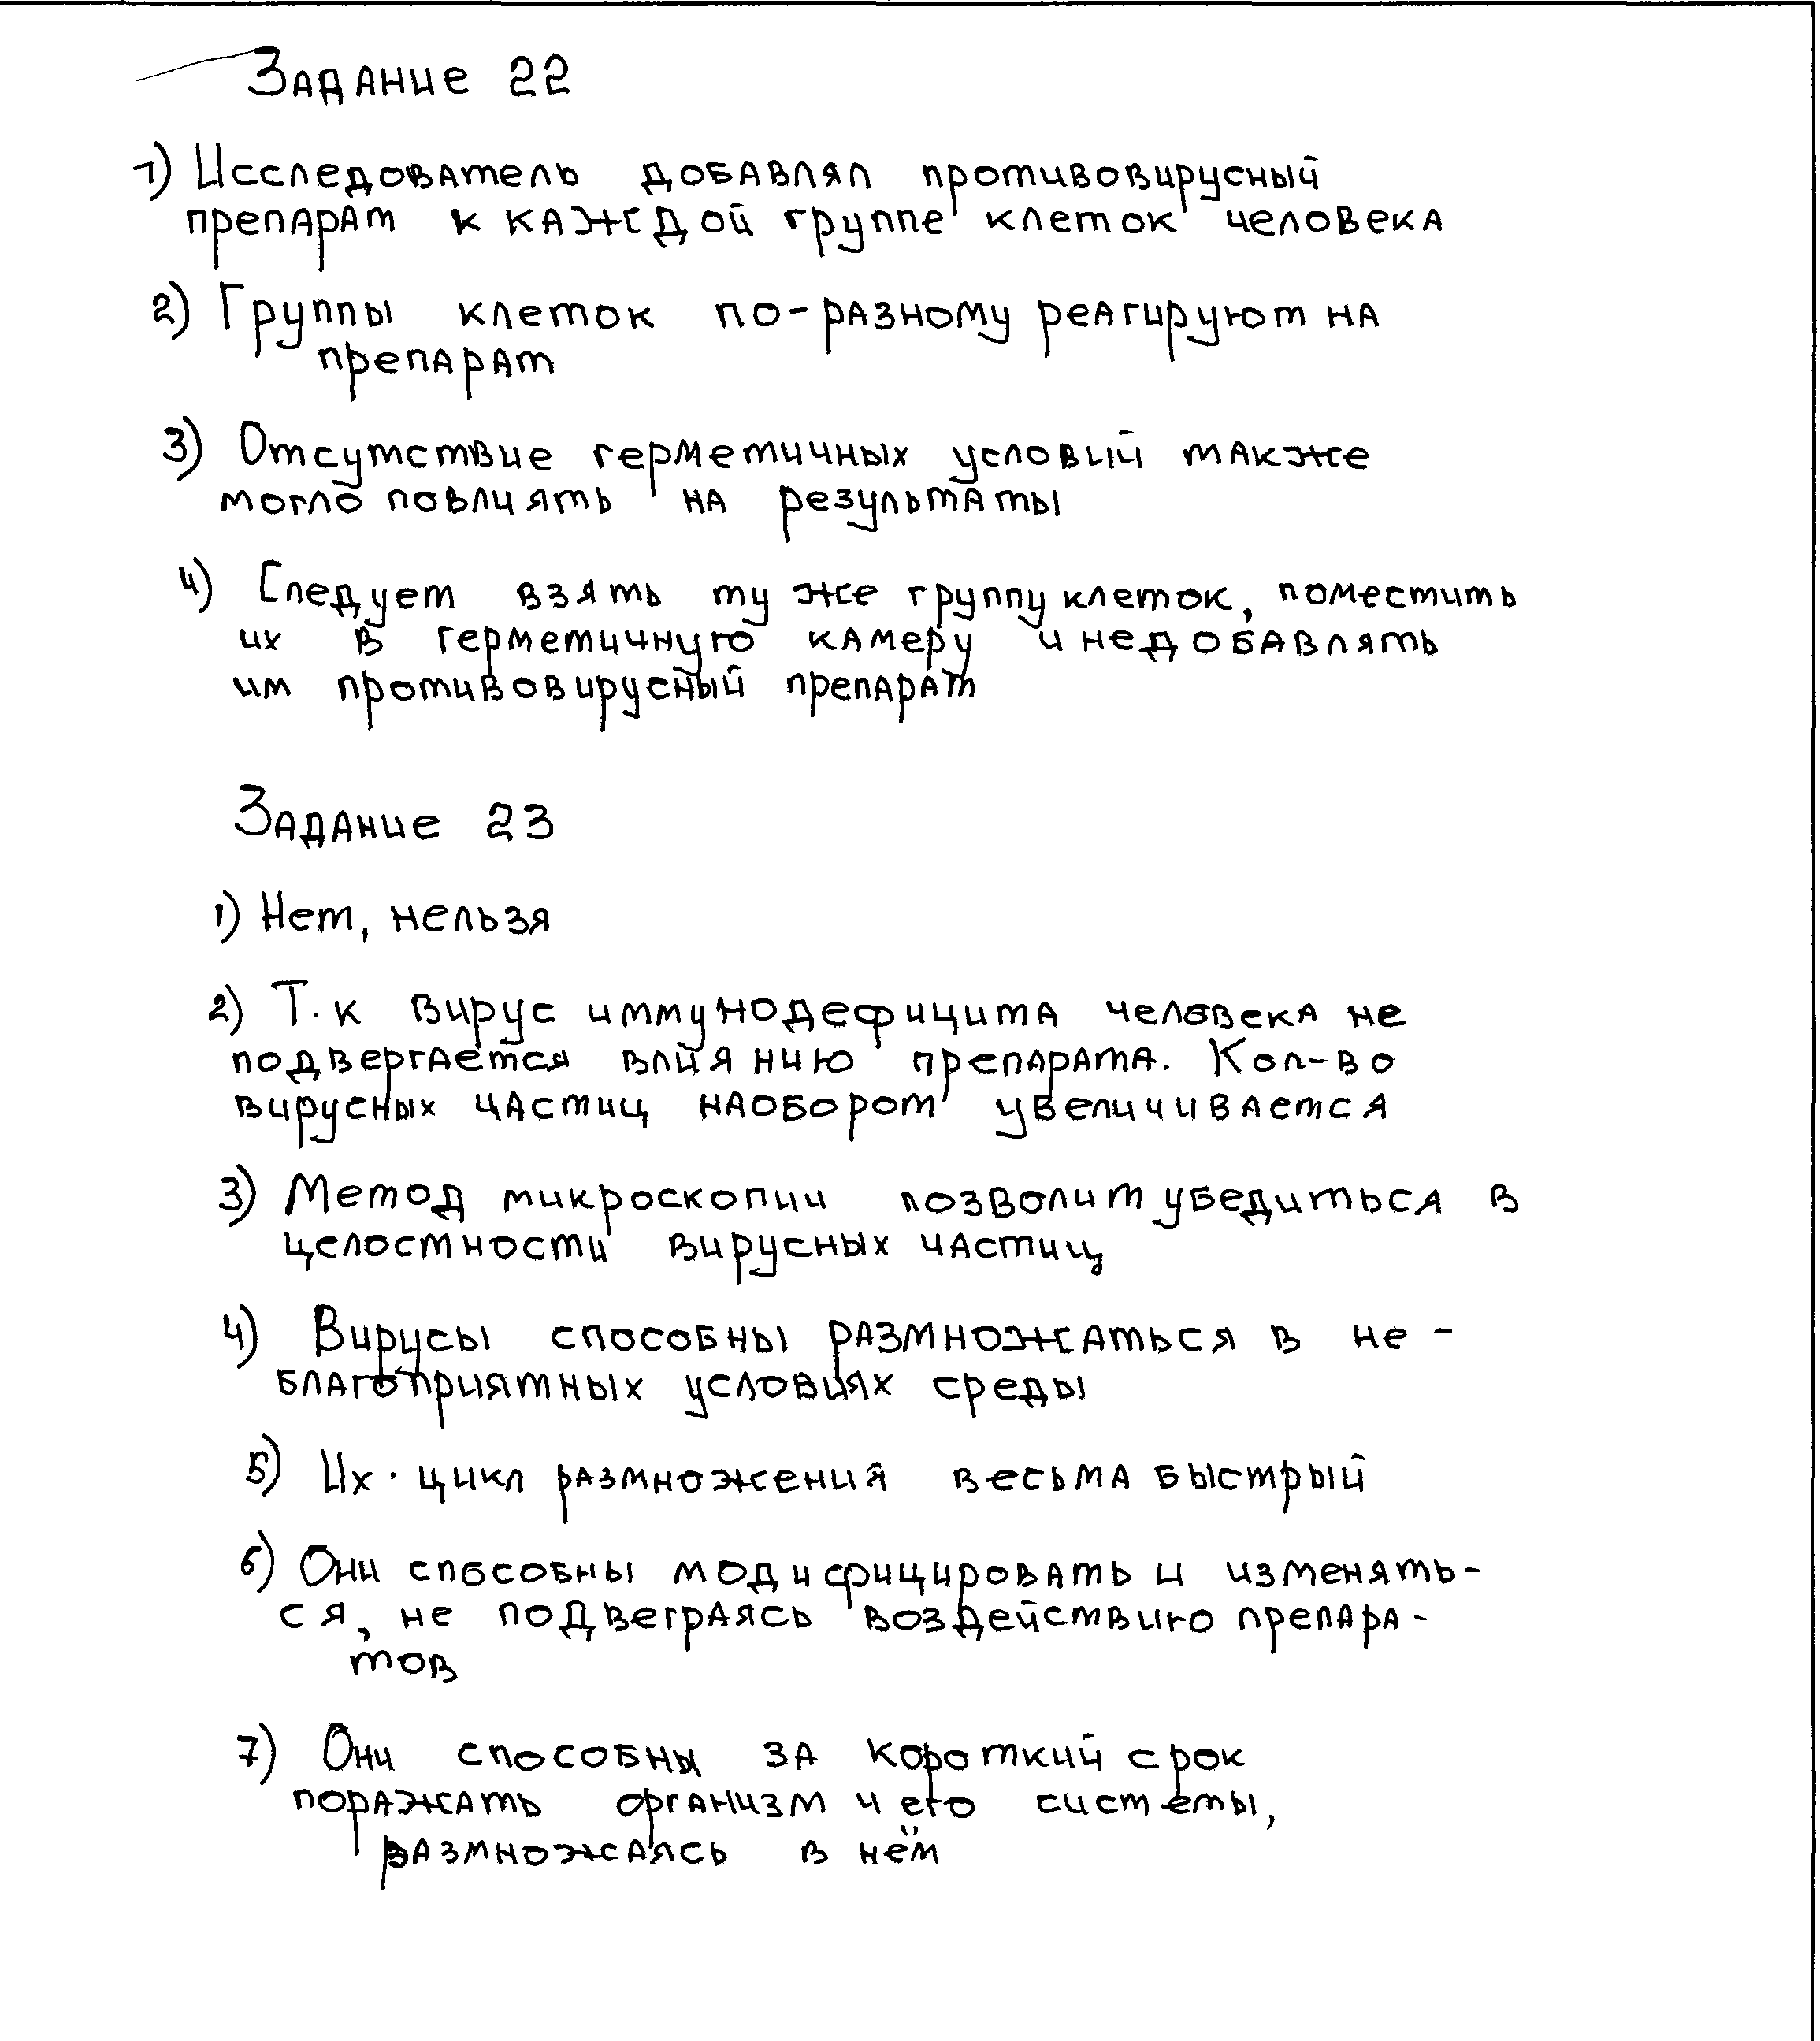 Задание 22
1) Исследователь добавлял противовирусный
препарат к каждой группе клеток человека
2) Группы клеток по-разному реагируют на
препарат
3) Отсутствие герметичных условый также
могло повлиять на результаты
4) Следует взять ту же группу клеток, поместить
их в герметичную камеру и не добавлять
им противовирусный препарат
Задание 23
1) Нет, нельзя
2) Т.к вирус иммунодефицита человека не
подвергается влиянию препарата. Кол-во
вирусных частиц наоборот увеличивается
3) Метод микроскопии позволит убедиться в
целостности вирусных частиц
4) Вирусы способны размножаться в не-
благоприятных условиях среды
5) Их цикл размножения весьма быстрый
6) Они способны модифицировать и изменять-
ся, не подвеграясь воздействию препара-
тов
7) Они способны за короткий срок
поражать организм и его системы,
размножаясь в нём